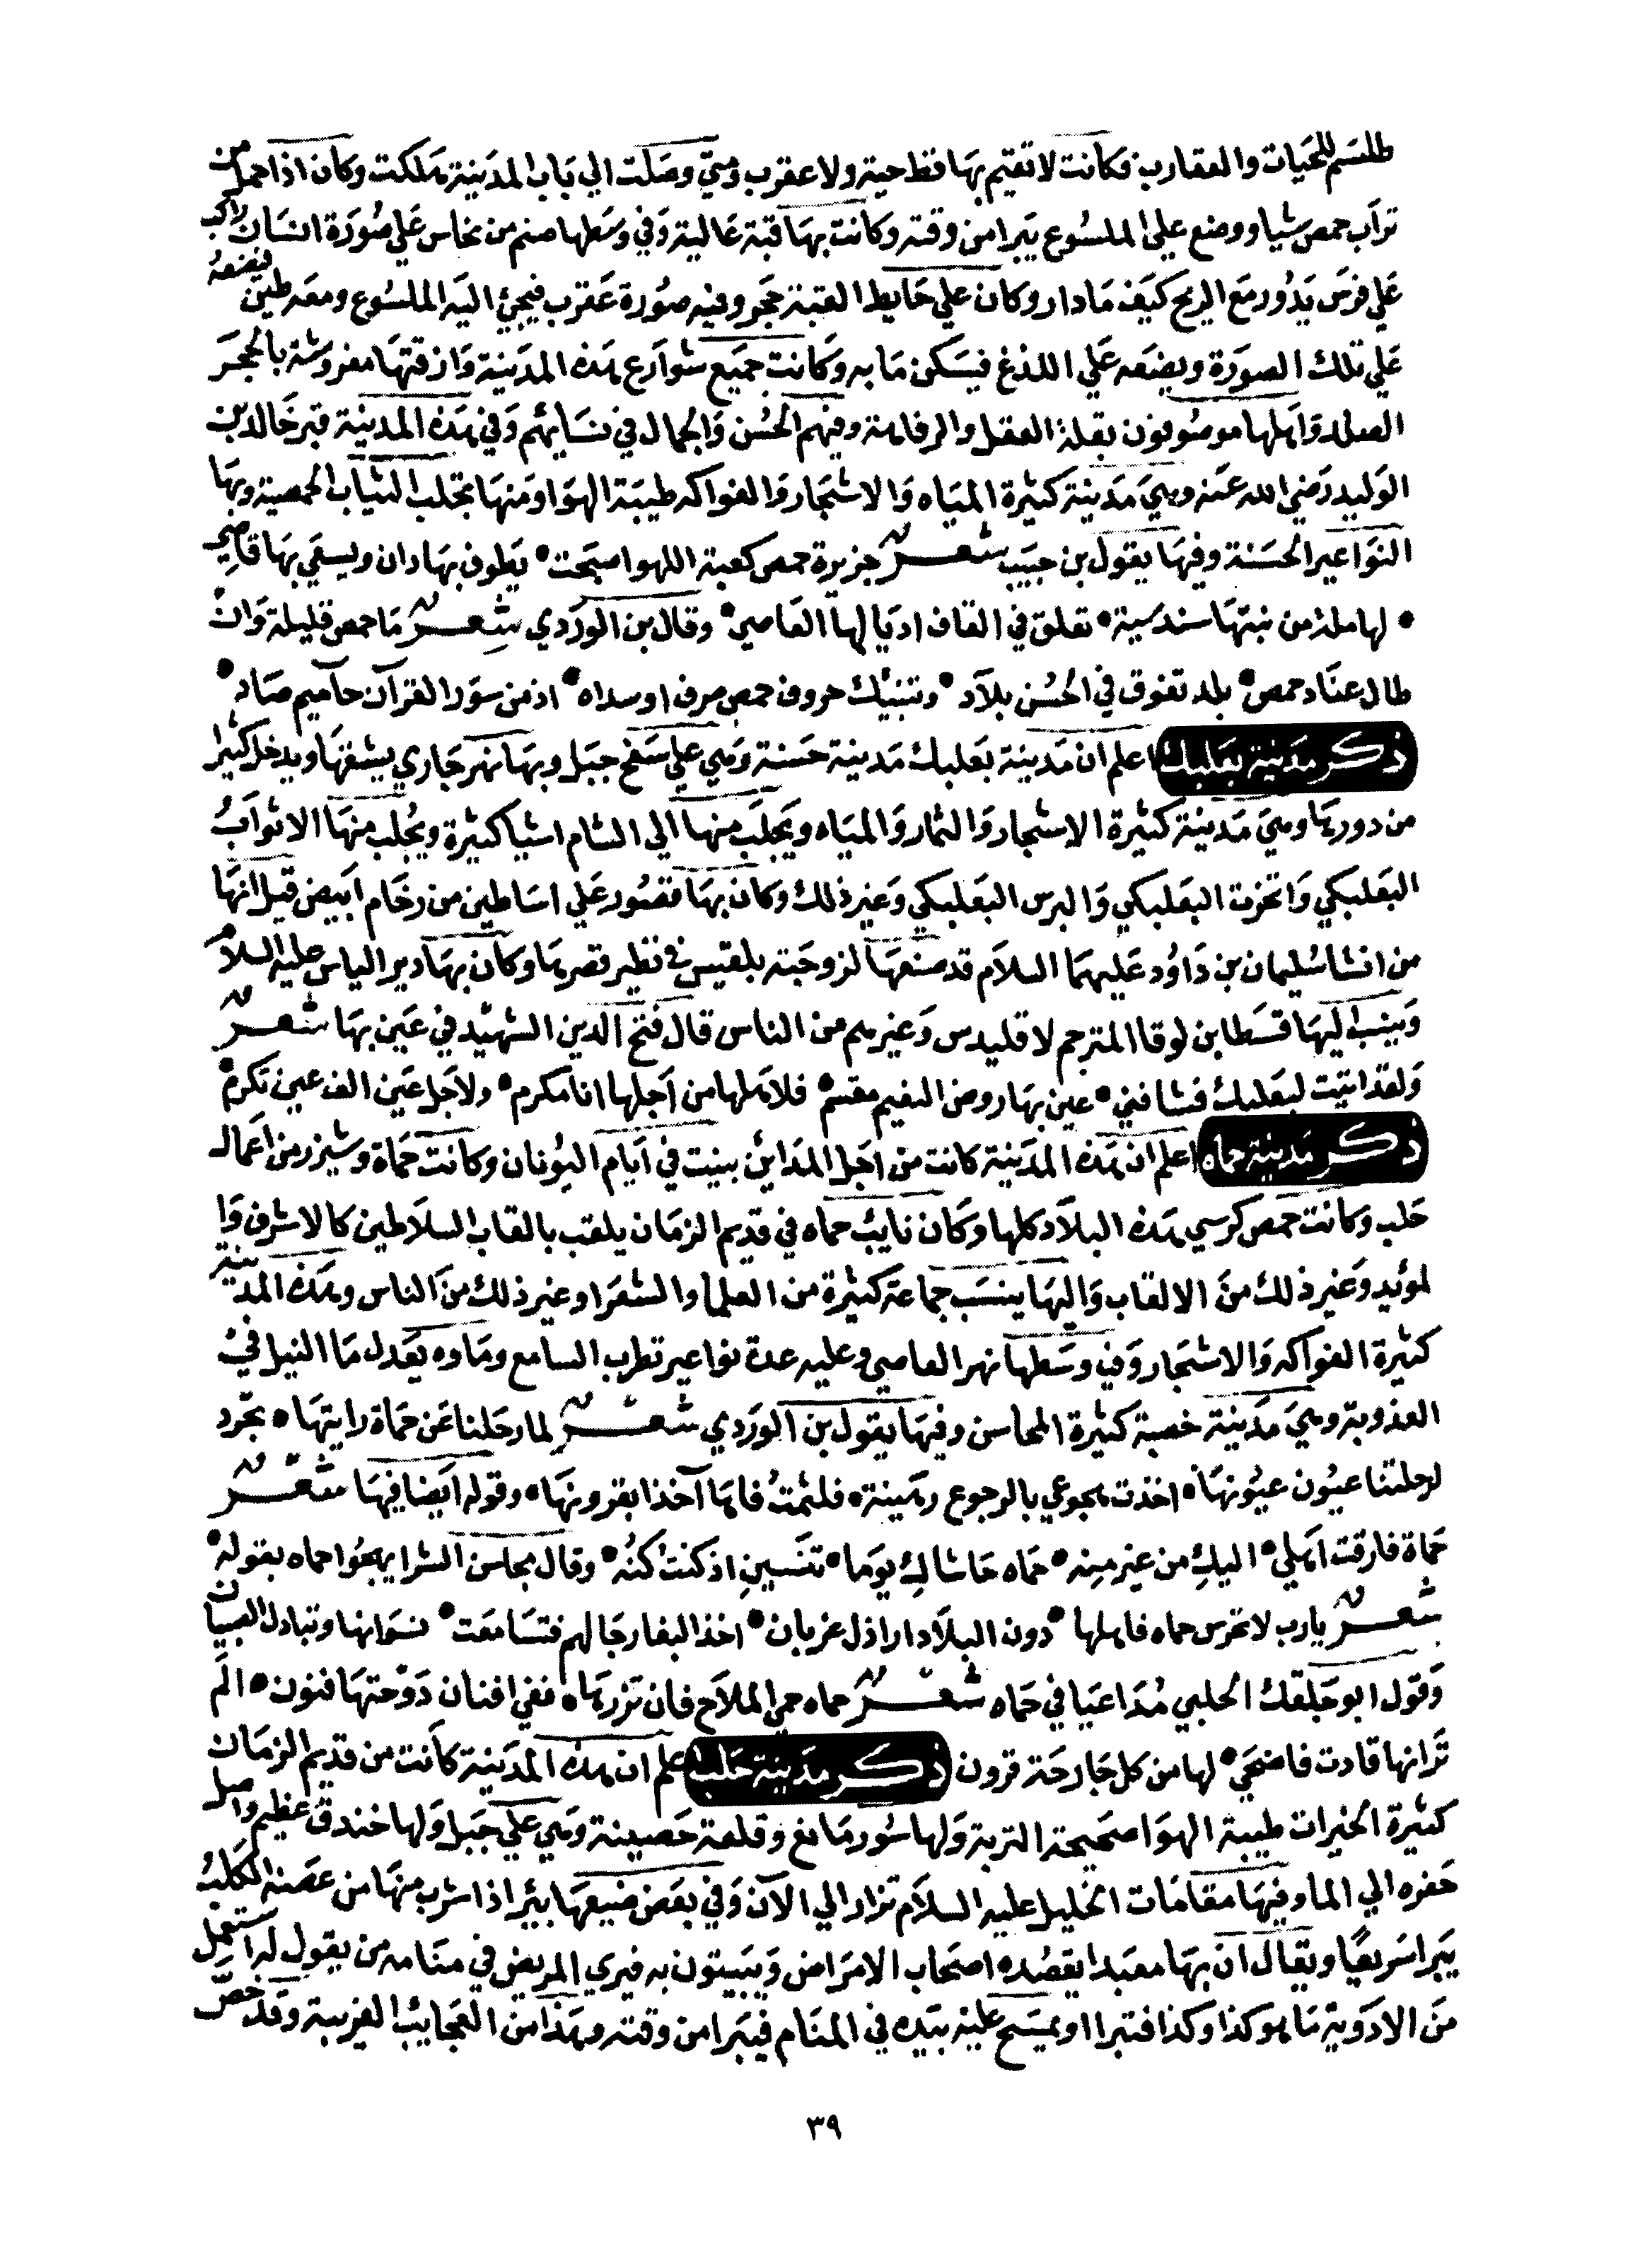 طلسم للحيات والعقارب فكانت لا تقيم بها قط حية ولا عقرب ومتي وصلت الي باب المدينة هلكت وكان اذا حمل من
تراب حمص شيا ووضع علي الملسوع يبرا من وقته وكانت بها قبة عالية وفي وسطها صنم من نحاس علي صورة انسان راكب
علي فرس يدور مع الريح كيف ما دار وكان علي حايط القبة حجر وفيه صورة عقرب فيجئ اليه الملسوع ومعه طين فيضعه
علي تلك الصورة ويضعه علي اللدغ فيسكن ما به وكانت جميع شوارع هذه المدينة وازقتها مفروشة بالحجر
الصلد واهلها موصوفون بقلة العقل والرفاهة وفيهم الحسن والجمال في نسائهم وفي هذه المدينة قبر خالد بن
الوليد رضي الله عنه وهي مدينة كثيرة المياه والاشجار والفواكه طيبة الهوا ومنها تجلب الثياب الحمصية وبها
النواعير الحسنة وفيها يقول بن حبيب شعر جزيرة حمص كعبة اللهو اصبحت • يطوف بها دان ويسقي بها قاصي
• لها حلة من نبتها سندسية • تعلق في القاف اديالها العاصي • وقال بن الوردي شعر ما حمص قليلة وان
طال عناد حمص • بلد تفوق في الحسن بلاد • وتنبيك حروف حمص صرف او سداه • اذ من سور القرآن حاميم صاد •
ذكر مدينة بعلبك اعلم ان مدينة بعلبك مدينة حسنة وهي علي سفح جبل وبها نهر جاري يشقها ويدخل كثيرا
من دورها وهي مدينة كثيرة الاشجار والثمار والمياه ويجلب منها الي الشام اشيا كثيرة ويجلب منها الاثواب
البعلبكي والبرس البعلبكي وغير ذلك وكان بها قصور علي اساطين من رخام ابيض قيل انها
من انشا سليمان بن داود عليهما السلام قد صنعها لزوجته بلقيس في نظير قصرها وكان بها دير الياس عليه السلام
وينسب اليها قسطا بن لوقا المترجم لاقليدس وغيرهم من الناس قال فتح الدين الشهيد في عين بها شعر
ولقد اتيت لبعلبك فشاقني • عين بها روض النعيم مقسم • فلاهلها من اجلها انا مكرم • ولاجل عين الف عين تكرم •
ذكر مدينة حماه اعلم ان هذه المدينة كانت من اجل المداين بنيت في ايام اليونان وكانت حماة وشيزر من اعمال
حلب وكانت حمص كرسي هذه البلاد كلها وكان نايب حماه في قديم الزمان يلقب بالقاب السلاطين كالاشرف وا
لمويد وغير ذلك من الالقاب واليها ينسب جماعة كثيرة من العلما والشعرا وغير ذلك من الناس وهذه المدينة
كثيرة الفواكه والاشجار وفي وسطها نهر العاصي وعليه عدة نواعير تطرب السامع وماوه يعدل ما النيل في
العذوبة وهي مدينة خصبة كثيرة المحاسن وفيها يقول بن الوردي شعر لما رحلنا عن حماة رايتها • تجرد
لرحلتنا عيون عيونها • اخذت بالرجوع رهينة • فلثمت فاها آخذا بقرونها • وقوله ايضا فيها شعر
حماة فارقت اهلي • اليك من غير مينه • حماه حاشاك يوما • تنسين اذ كنت كنه • وقال محاسن الشرا يهجوا حماه بقوله •
شعر يارب لا تحرس حماه فاهلها • دون البلاد اراذل عربان • اخذ البغا رجالهم فتسامعت • نسوانها وتبادل الصبيان
وقول ابو جلقك الحلبي مداعيا في حماه شعر حماه حمي الملاح فان تزرها • ففي افنان دوحتها فنون • الم
ترانها قادت فاضحي • لها من كل جارحة قرون ذكر مدينة حلب اعلم ان هذه المدينة كانت من قديم الزمان
كثيرة الخيرات طيبة الهوا صحيحة التربة ولها سور مانع وقلعة حصينة وهي علي جبل ولها خندق عظيم واصل
حفره الي الما وفيها مقامات الخليل عليه السلام تزار الي الآن وفي بعض ضيعها بئر اذا شرب منها من عضه الكلب
يبرا سريعا ويقال ان بها معبدا يقصده اصحاب الامراض ويبيتون به فيري المريض في منامه من يقول له استعمل
من الادوية ما هو كذا وكذا فتبرا او يمسح عليه بيده في المنام فيبرا من وقته وهذا من العجائب الغريبة وقد خص
٣٩